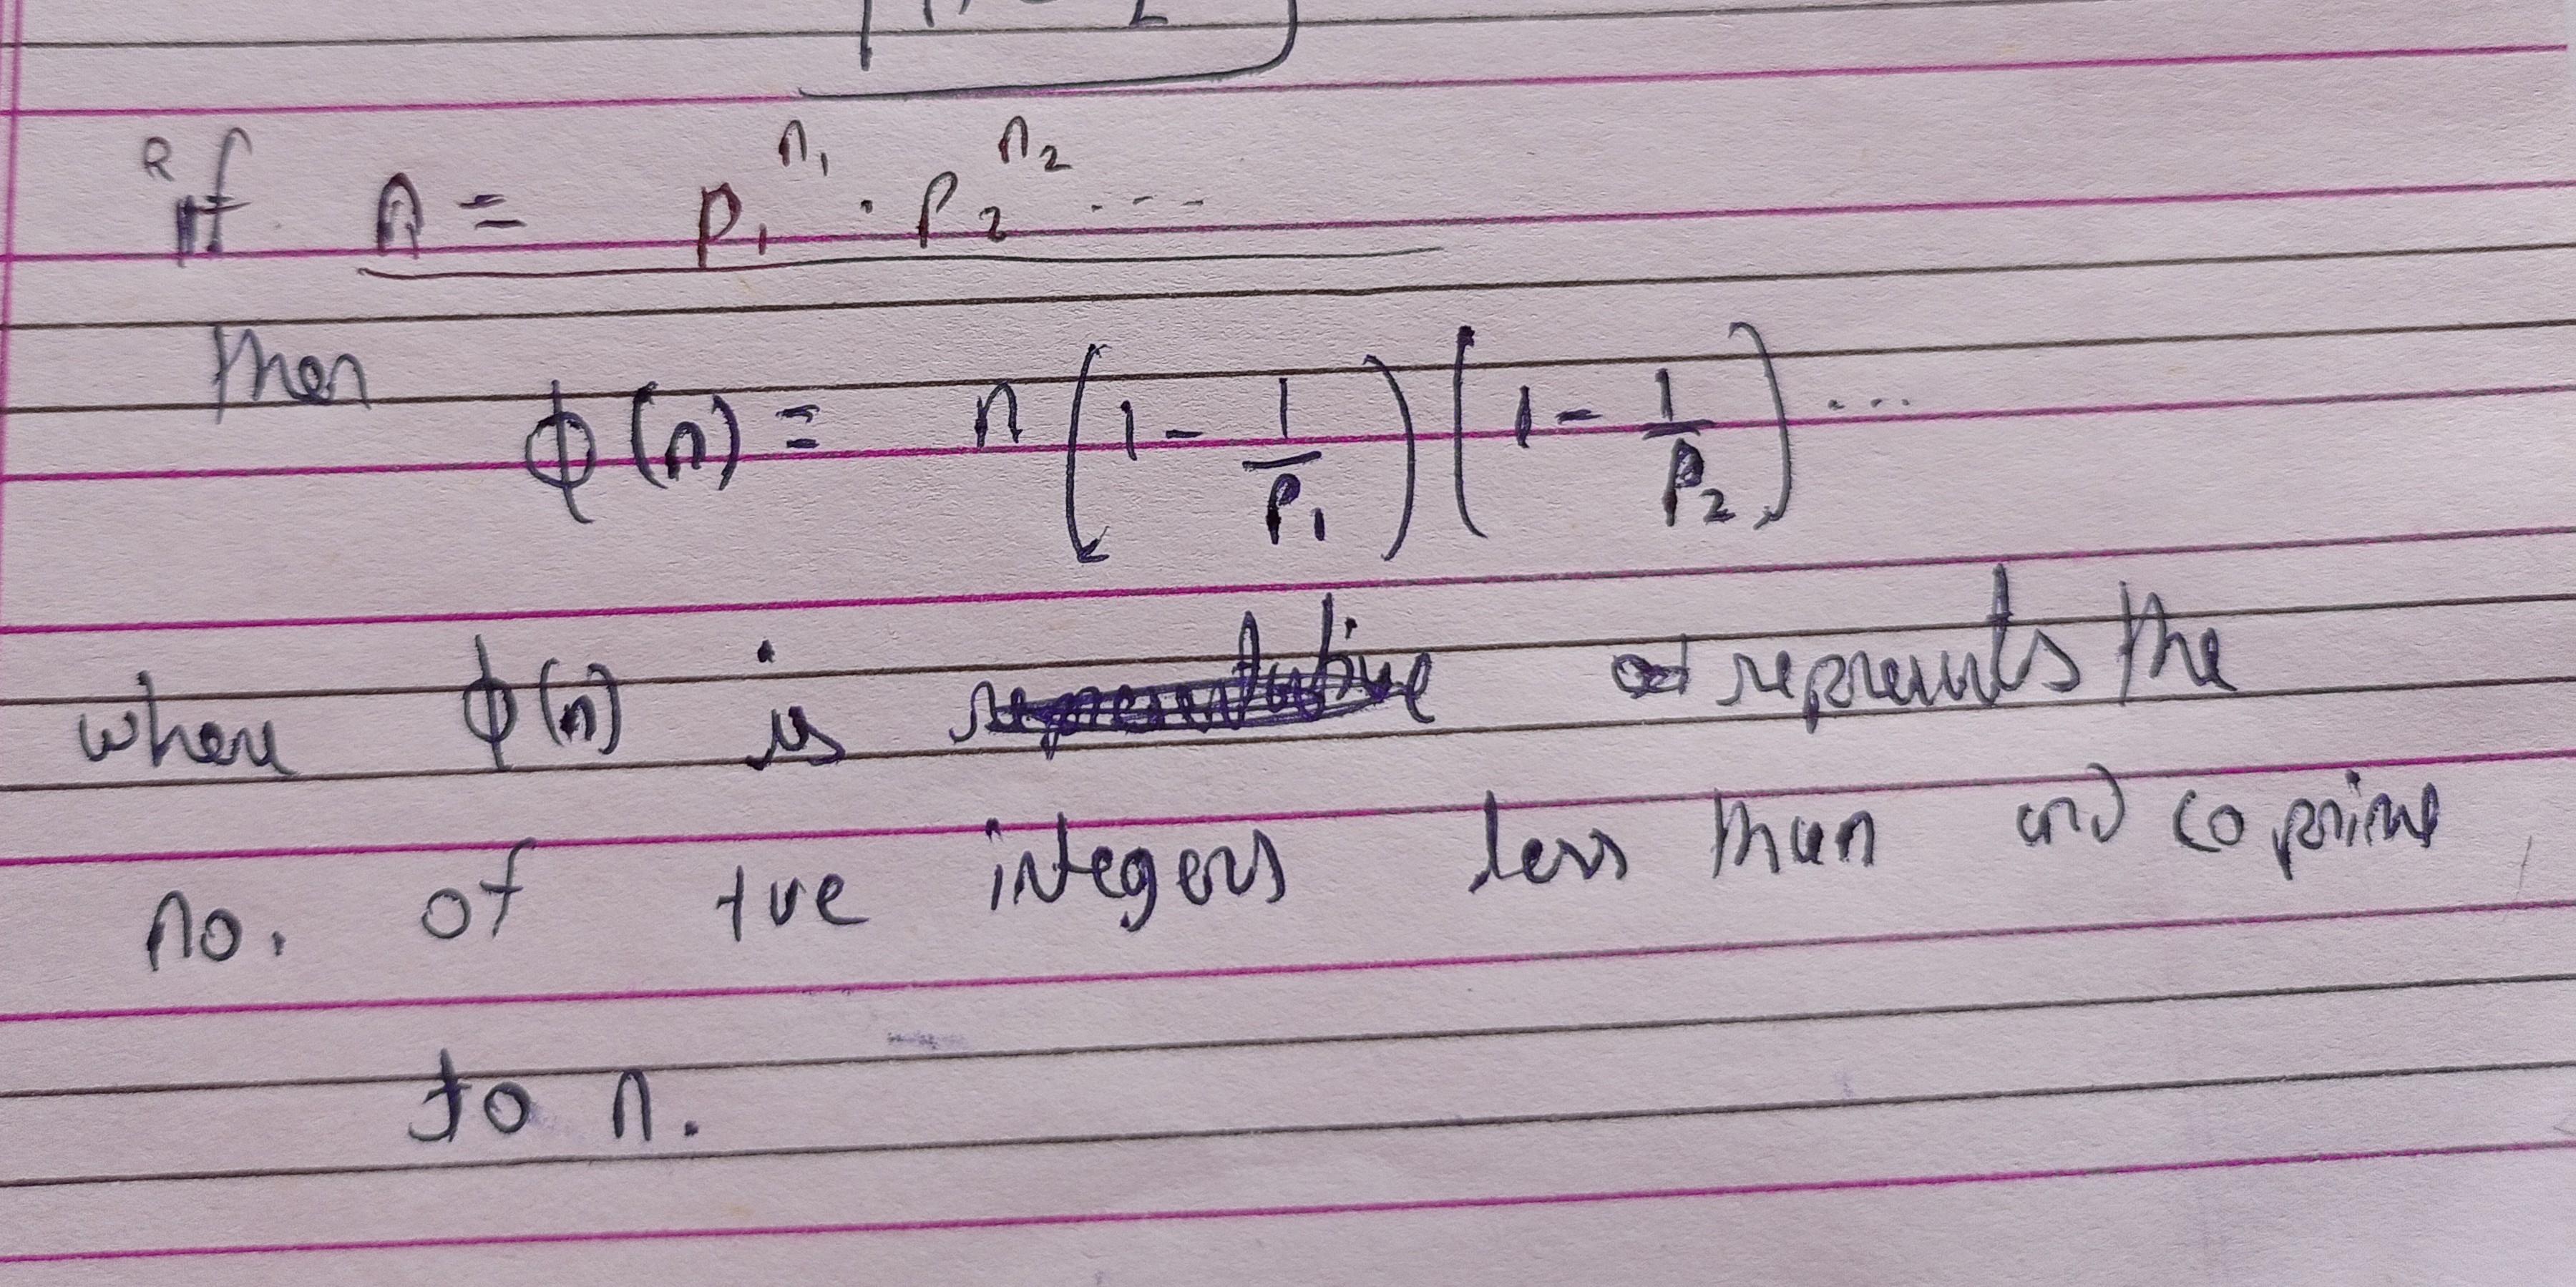 If n = p₁^n₁ · p₂^n₂ ...
then ϕ(n) = n (1 - 1/p₁) (1 - 1/p₂) ...
where ϕ(n) is represents the
no. of +ve integers less than and coprime
to n.